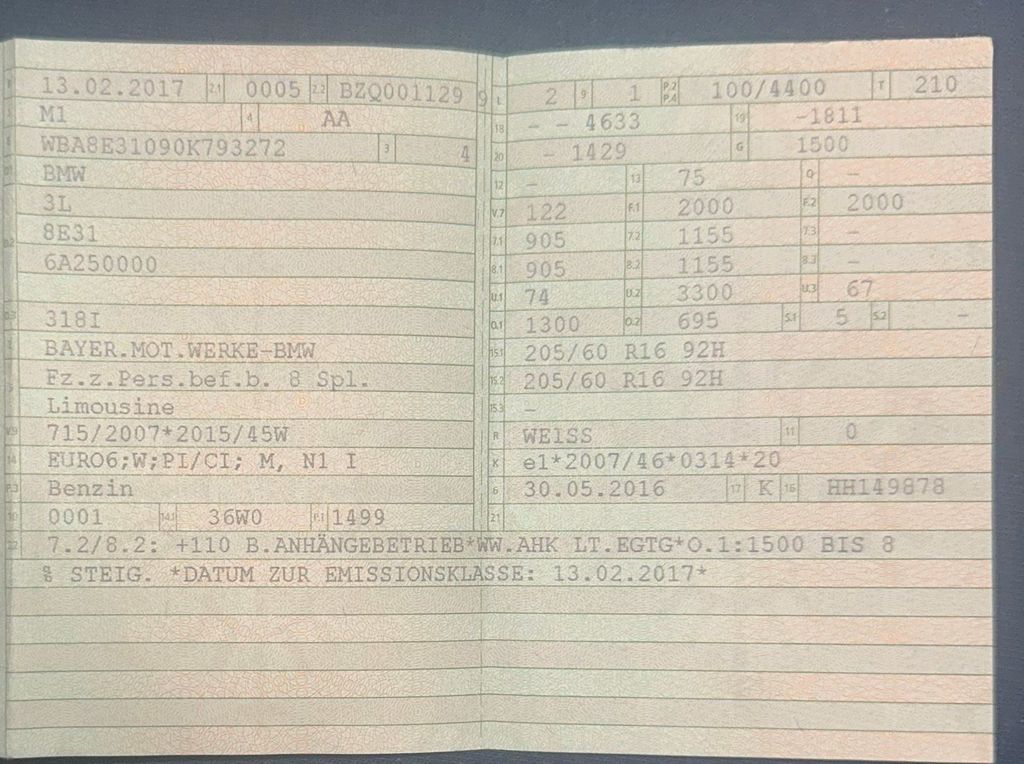 13.02.2017 2.1 0005 2.2 BZQ001129 9
M1 4 AA
WBA8E31090K793272 3 4
BMW
3L
8E31
6A250000
318I
BAYER.MOT.WERKE-BMW
Fz.z.Pers.bef.b. 8 Spl.
Limousine
715/2007*2015/45W
EURO6;W;PI/CI; M, N1 I
Benzin
0001 14.1 36W0 P.1 1499
L 2 9 1 P.2 P.4 100/4400 T 210
18 - - 4633 19 -1811
20 - 1429 G 1500
12 - 13 75 Q -
V.7 122 F.1 2000 F.2 2000
7.1 905 7.2 1155 7.3 -
8.1 905 8.2 1155 8.3 -
U.1 74 U.2 3300 U.3 67
O.1 1300 O.2 695 S.1 5 S.2 -
15.1 205/60 R16 92H
15.2 205/60 R16 92H
15.3 -
R WEISS 11 0
K e1*2007/46*0314*20
6 30.05.2016 17 K 16 HH149878
21
7.2/8.2: +110 B.ANHÄNGEBETRIEB*WW.AHK LT.EGTG*O.1:1500 BIS 8
% STEIG. *DATUM ZUR EMISSIONSKLASSE: 13.02.2017*